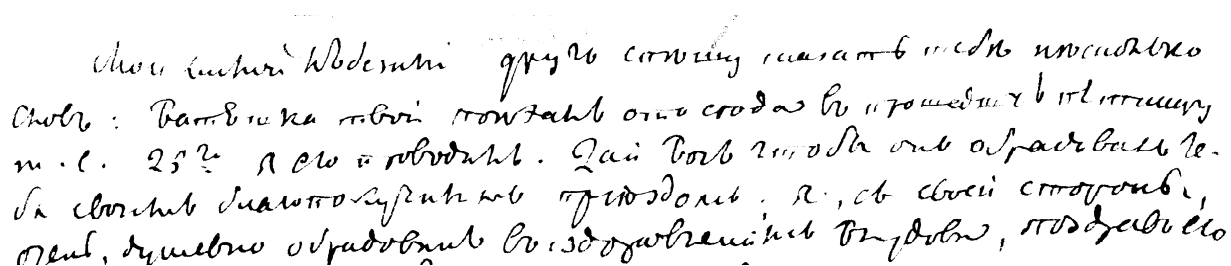 Мой милый Юденька другъ спѣшу сказать тебѣ нѣсколько
словъ: Батюшка твой поѣхалъ отъ сюда въ прошедшую пятницу
т. е. 25го я его проводилъ. Дай Богъ чтобы онъ обрадовалъ те-
бя своимъ благополучнымъ пріѣздомъ. Я, съ своей стороны,
очень, душевно обрадованъ выздоровленіемъ поздравь его